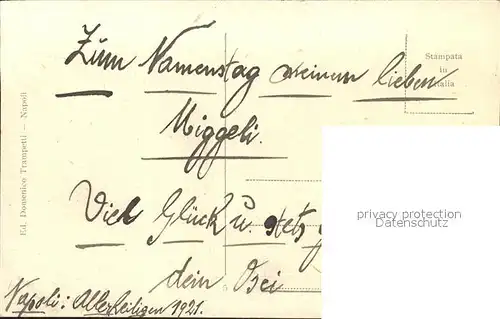 Stampata
in
Italia
Zum Namenstag meinem lieben
Miggeli.
Viel Glück u. stets
dein
Napoli: Allerheiligen 1921.
Ed. Domenico Trampetti — Napoli
privacy protection
Datenschutz